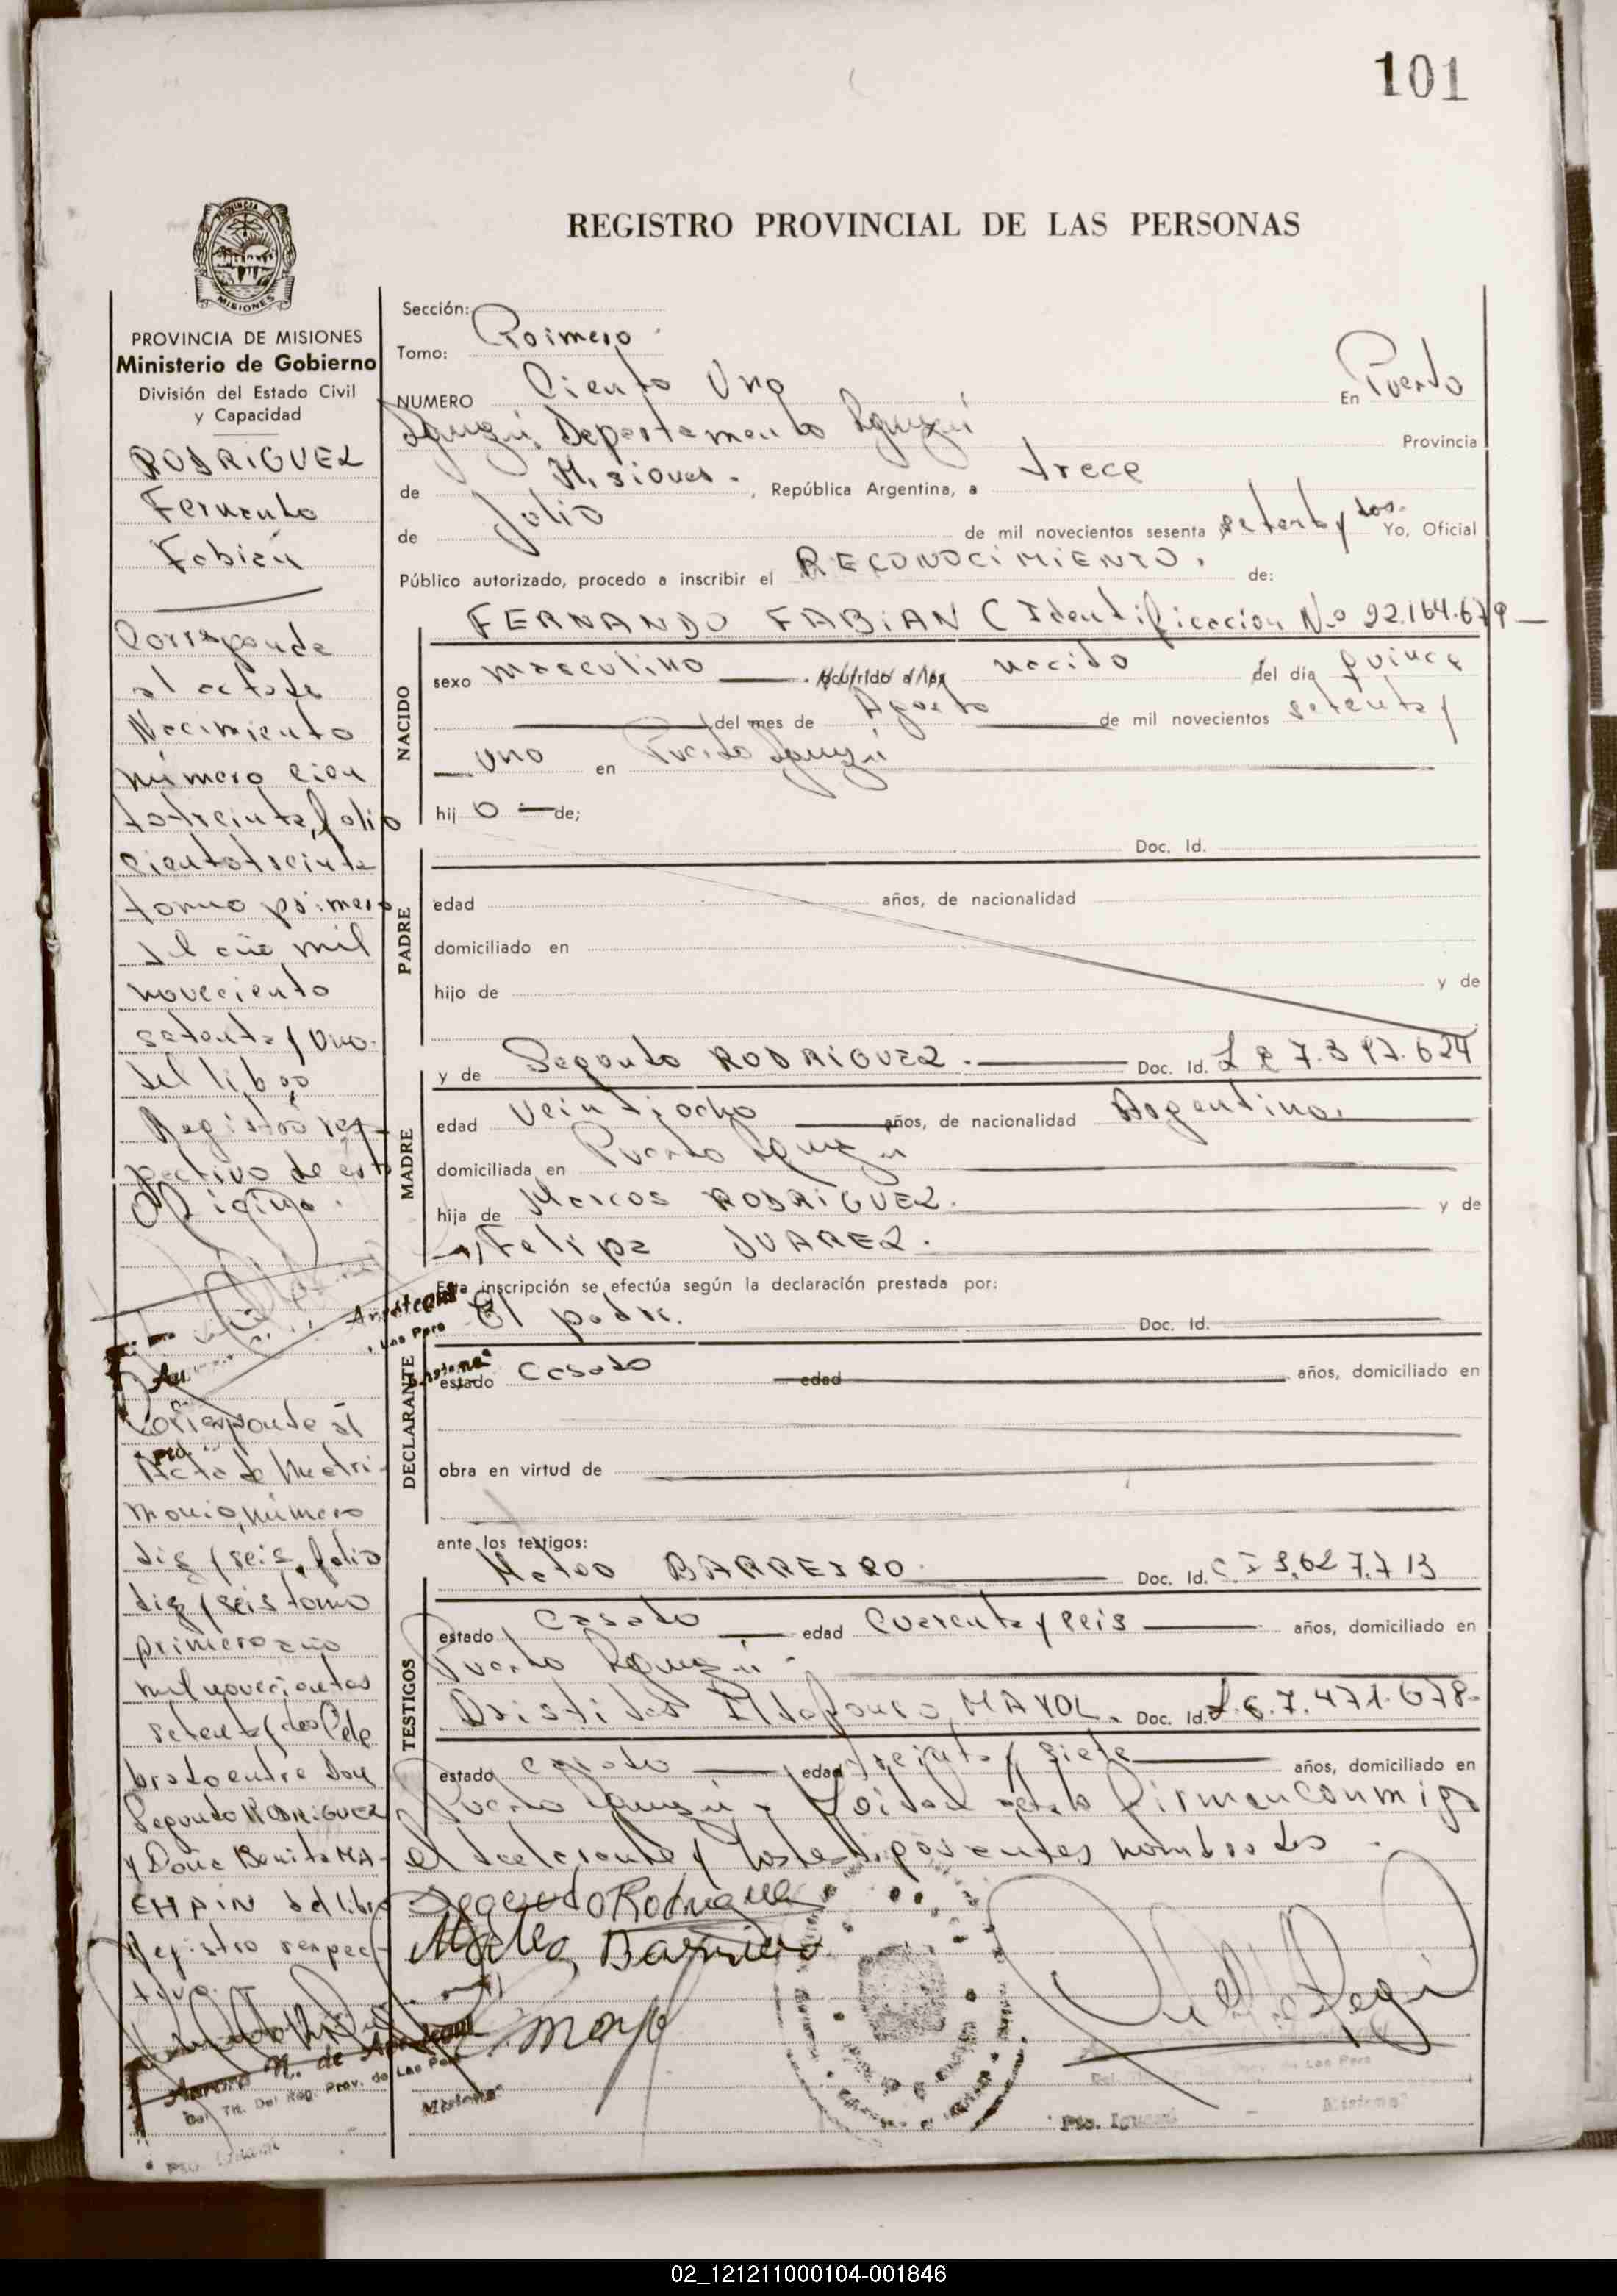 101
REGISTRO PROVINCIAL DE LAS PERSONAS
PROVINCIA DE MISIONES
PROVINCIA DE MISIONES
Ministerio de Gobierno
División del Estado Civil
y Capacidad
RODRIGUEZ
Fernando
Fabián
Corresponde
al acta de
Nacimiento
número cien
to treinta, folio
ciento treinta
tomo primero
del año mil
noveciento
setenta y uno.
del libro
Registro res
pectivo de esta
Oficina.
Corresponde al
Acta de Matri-
monio, número
diez y seis, folio
diez y seis tomo
primero año
mil novecientos
setenta y dos Cele
brado entre Don
Segundo RODRIGUEZ
y Doña Benita MA-
CHAIN del libro
Registro respec-
tivo.
Sección:
Tomo: Primero.
NUMERO Ciento Uno En Puerto
Iguazú, Departamento Iguazú Provincia
de Misiones. , República Argentina, a trece
de Julio de mil novecientos sesenta y setenta y dos. Yo, Oficial
Público autorizado, procedo a inscribir el RECONOCIMIENTO. de:
FERNANDO FABIAN (Identificación No 22.164.679
NACIDO
sexo masculino . ocurrido a las nacido del día quince
del mes de Agosto de mil novecientos setenta y
uno en Puerto Iguazú
hij o de;
PADRE
Doc. Id.
edad años, de nacionalidad
domiciliado en
hijo de y de
MADRE
y de Segundo RODRIGUEZ. Doc. Id. L E 7.517.624
edad veintiocho años, de nacionalidad Argentina.
domiciliada en Puerto Iguazú
hija de Marcos RODRIGUEZ. y de
Felipa JUAREZ.
Esta inscripción se efectúa según la declaración prestada por:
DECLARANTE
El padre. Doc. Id.
estado Casado edad años, domiciliado en
obra en virtud de
ante los testigos:
TESTIGOS
Mateo BARREIRO. Doc. Id. C I 3.627.713
estado Casado edad Cuarenta y seis años, domiciliado en
Puerto Iguazú.
Aristides Ildefonso, MAYOL. Doc. Id. L.E. 7.471.678.
estado casado edad treinta y siete años, domiciliado en
Puerto Iguazú. Leída el acta firman conmigo
el declarante y los testigos antes nombrados.
Segundo Rodriguez
Mateo Barreiro
Aurora N. de
Del. Tit. Del Reg. Prov. de Las Pers
Misiones
Pto. Iguazú
Pto. Iguazú - Misiones
02_121211000104-001846